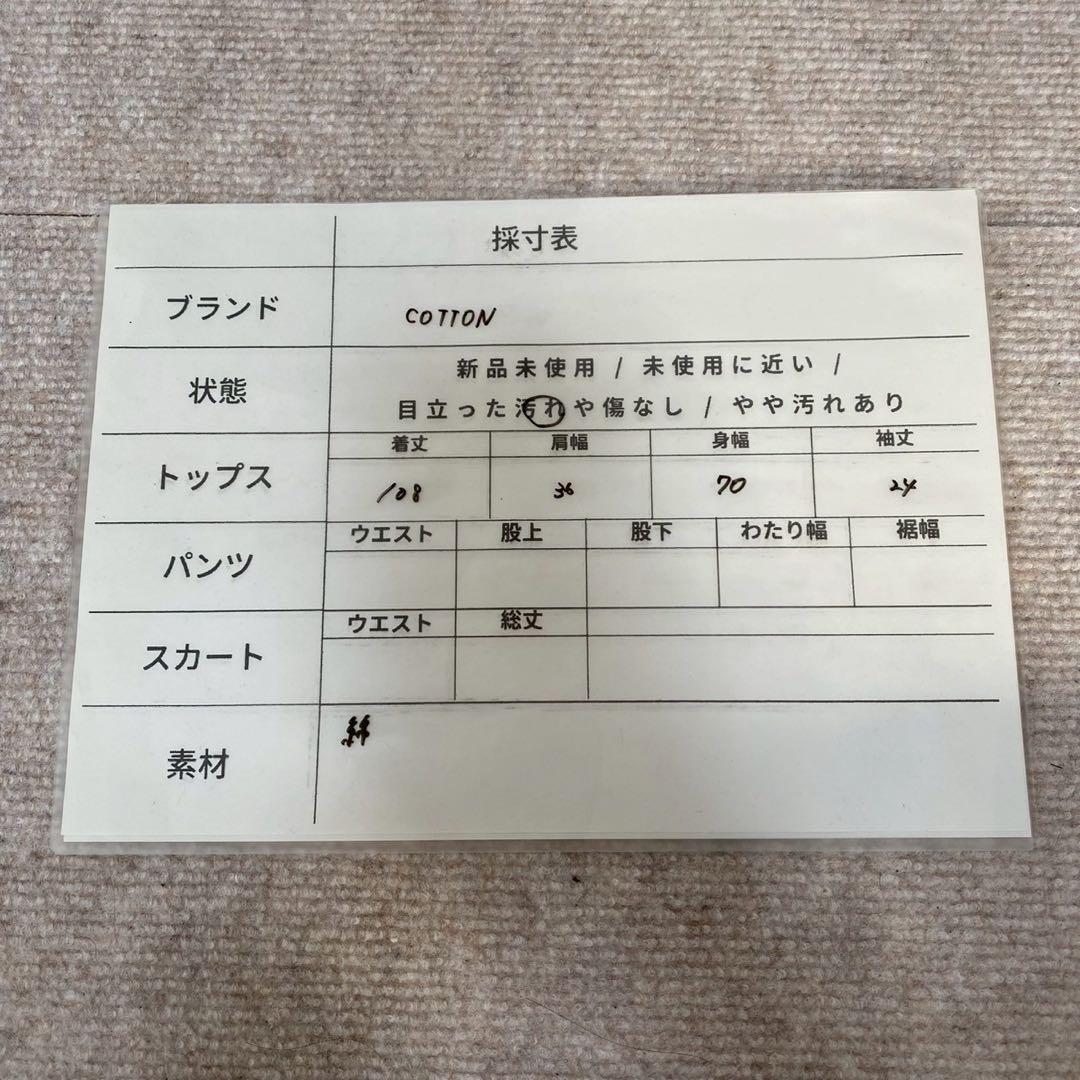 採寸表
ブランド COTTON
状態 新品未使用 / 未使用に近い /
目立った汚れや傷なし / やや汚れあり
着丈 肩幅 身幅 袖丈
トップス 108 36 70 24
ウエスト 股上 股下 わたり幅 裾幅
パンツ
ウエスト 総丈
スカート
素材 綿